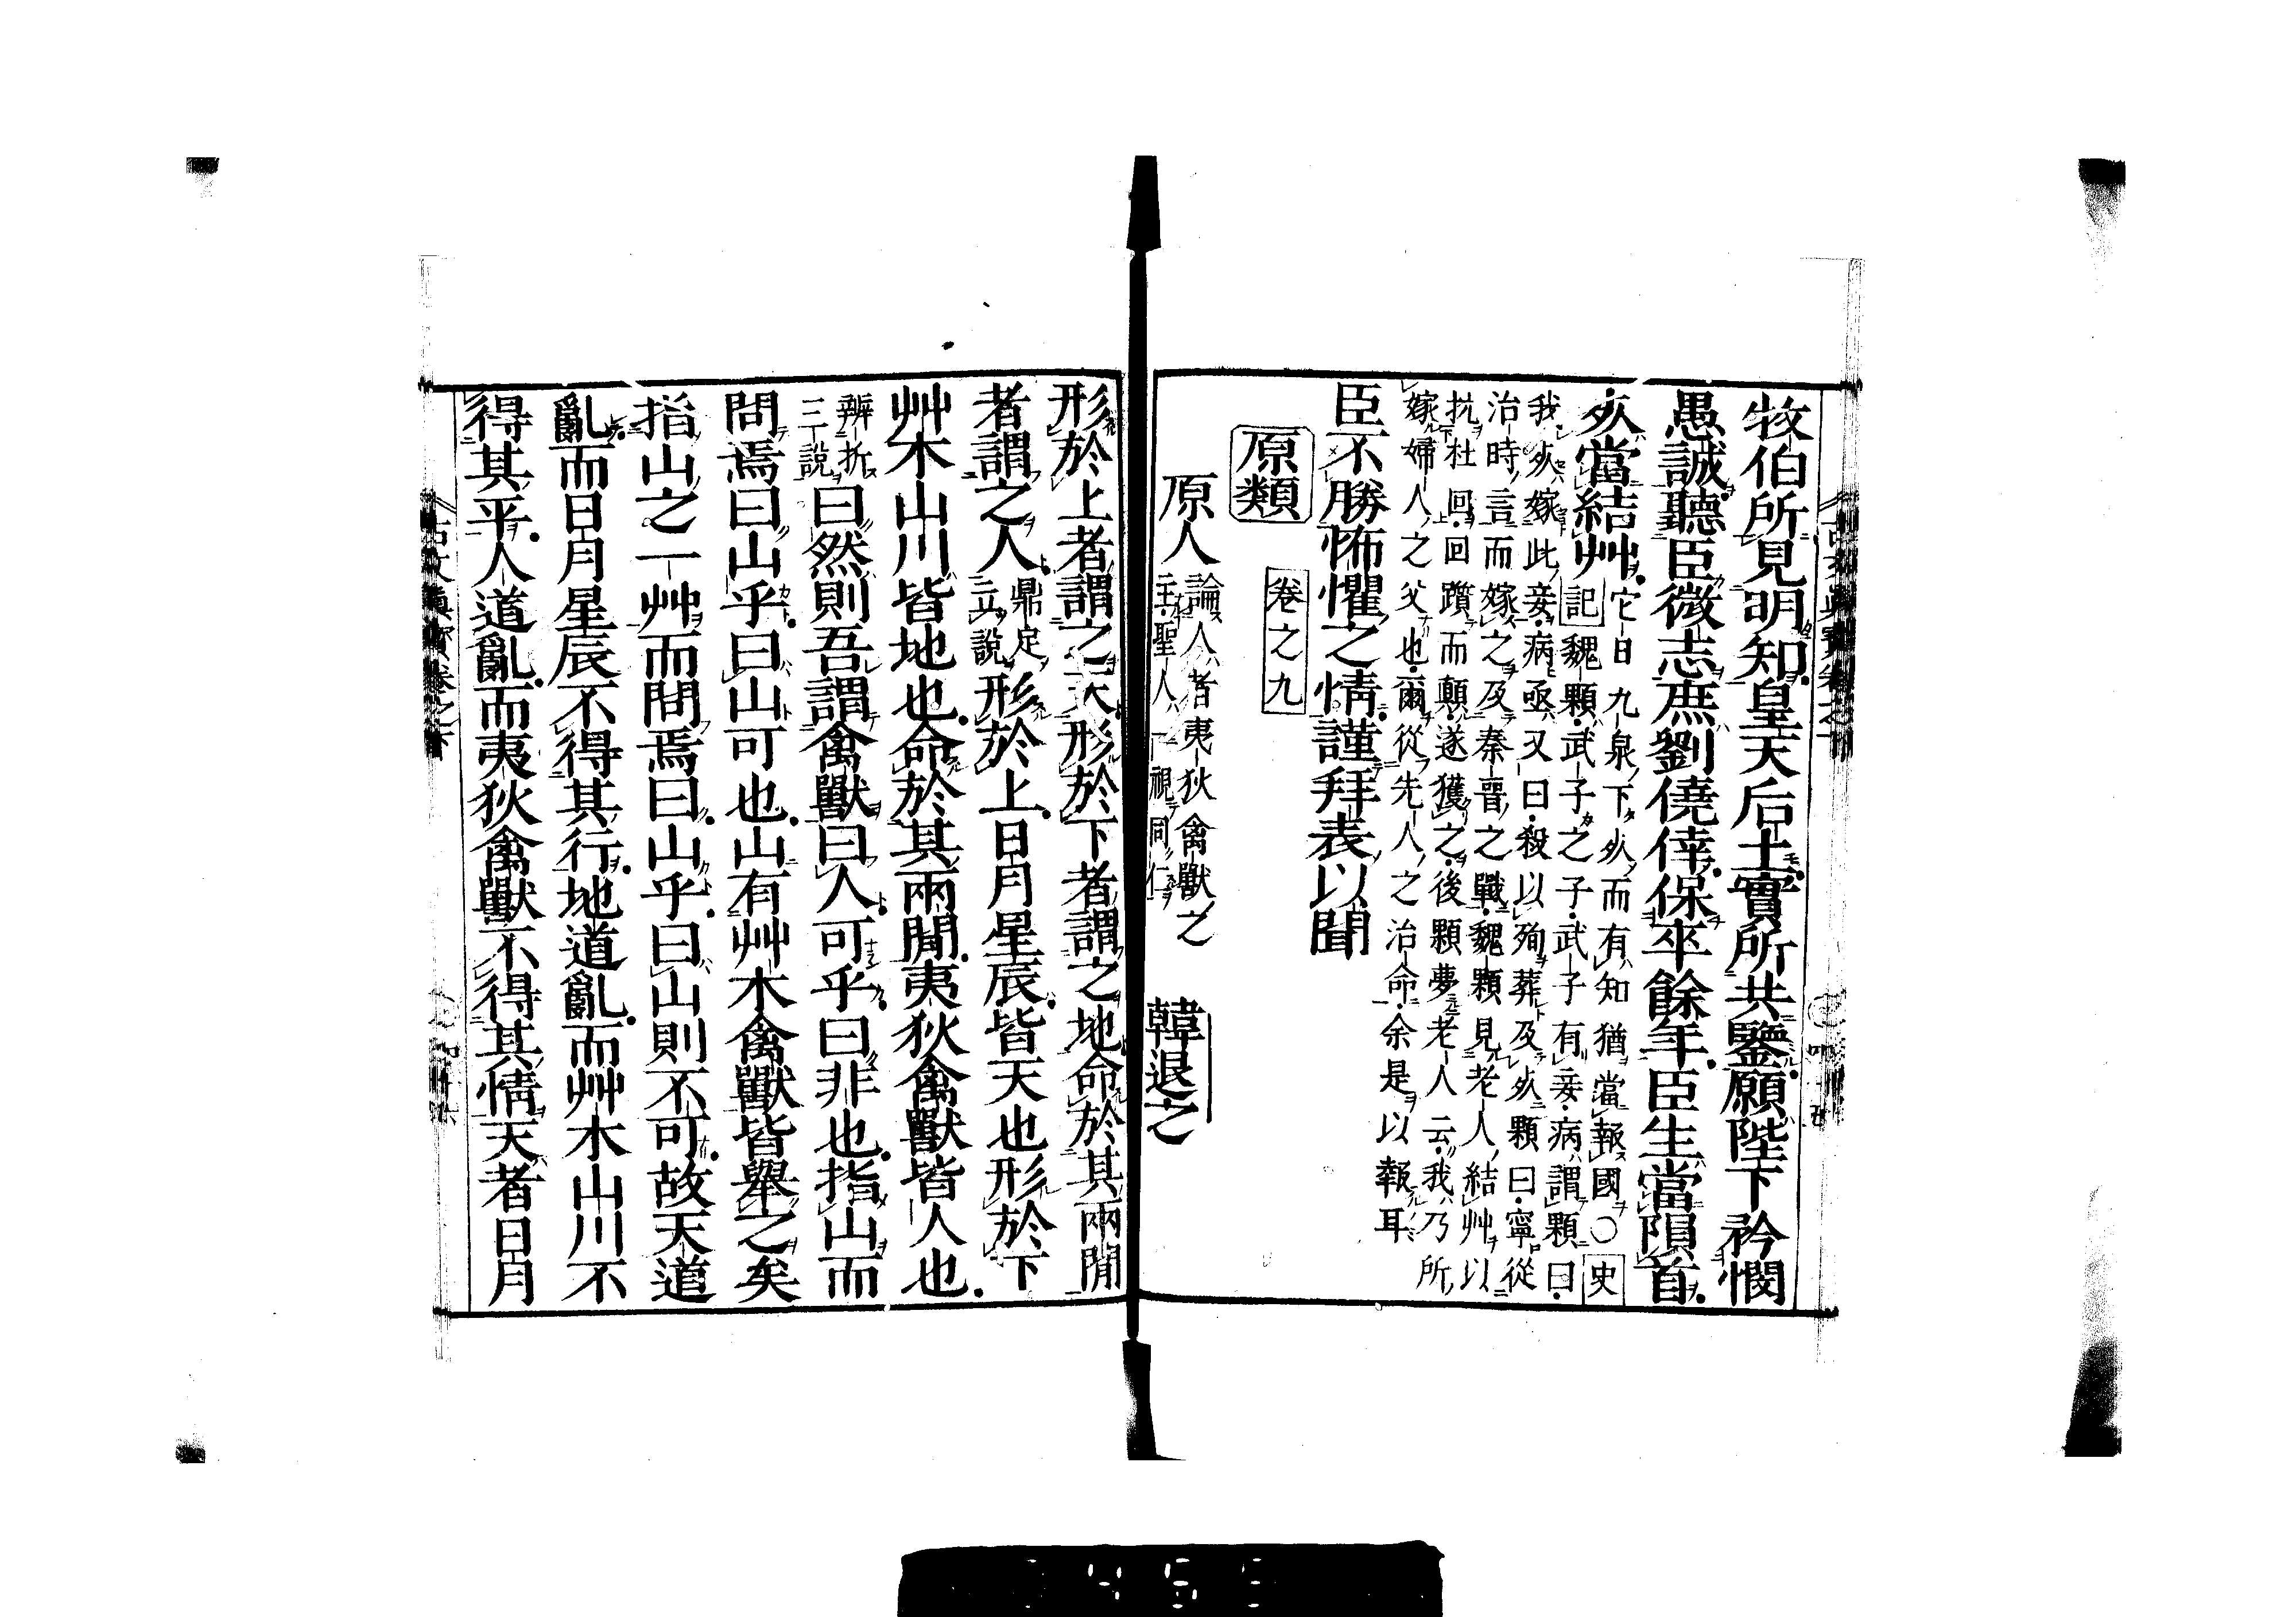 牧伯所見明知皇天后土實所共鑒願陛下衿憫
愚誠聽臣微志庶劉僥倖保卒餘年臣生當隕首
死當結艸它日九泉下死而有知猶當報國〇史
記魏顆武子之子武子有妾病謂顆曰
我死嫁此妾病亟又曰殺以殉葬及死顆曰寧從
治時言而嫁之及秦晉之戰魏顆見老人結艸以
抗杜回回躓而顛遂獲之後顆夢老人云我乃所
嫁婦人之父也爾從先人之治命余是以報耳
臣不勝怖懼之情謹拜表以聞
原類
卷之九
原人
論人者夷狄禽獸之
主聖人一視同仁
韓退之
形於上者謂之天形於下者謂之地命於其兩閒
者謂之人
鼎定
三說
形於上日月星辰皆天也形於下
艸木山川皆地也命於其兩閒夷狄禽獸皆人也
辨折
三說
曰然則吾謂禽獸曰人可乎曰非也指山而
問焉曰山乎曰山可也山有艸木禽獸皆舉之矣
指山之一艸而問焉曰山乎曰山則不可故天道
亂而日月星辰不得其行地道亂而艸木山川不
得其平人道亂而夷狄禽獸不得其情天者日月
古文真寶卷之下